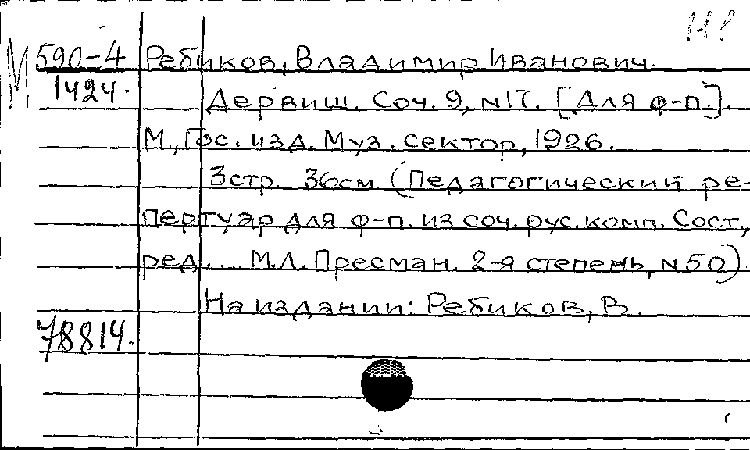 М 590-4 Ребиков, Владимир Иванович.
1424. Дервиш. Соч. 9, №17. [Для ф-п.].
М., Гос. изд. Муз. сектор, 1926.
3 стр. 36 см (Педагогический ре-
пертуар для ф-п. из соч. рус. комп. Сост.,
ред. ... М.Л. Пресман. 2-я степень, №50)
На издании: Ребиков, В.
78814.